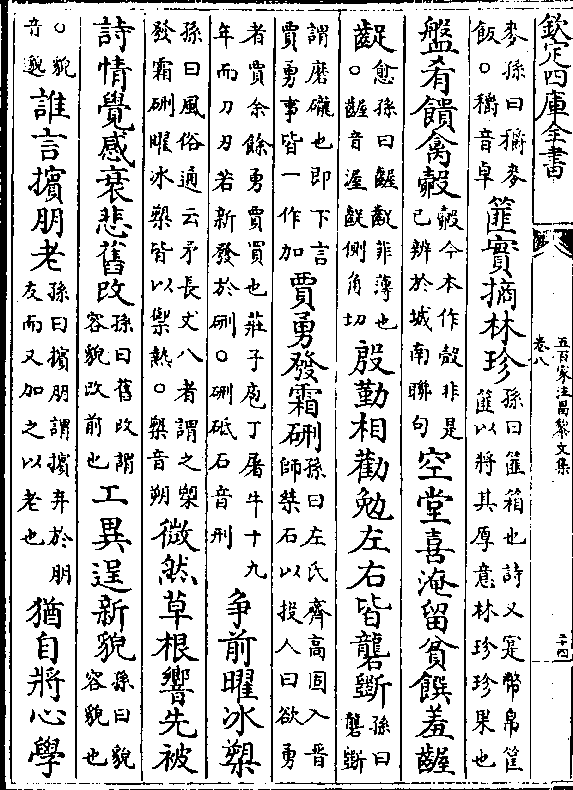 欽定四庫全書
卷八
五百家注昌黎文集
二十四
麥孫曰穪麥
飯○穪音卓
篚實摘林珍
孫曰篚箱也詩又寔幣帛筐
篚以將其厚意林珍珍果也
盤肴饋禽鷇
鷇今本作殼非是
已辨於城南聯句
空堂喜淹留貧饌羞齷
齪
愈孫曰齷齪菲薄也
○齷音渥齪側角切
殷勤相勸勉左右皆礱斲
孫曰
礱斲
謂磨礲也即下言
賈勇事皆一作加
賈勇發霜硎
孫曰左氏齊高固入晉
師桀石以投人曰欲勇
者賈余餘勇賈買也莊子庖丁屠牛十九
年而刀刃若新發於硎○硎砥石音刑
爭前曜冰槊
孫曰風俗通云矛長丈八者謂之槊
發霜硎曜冰槊皆以禦熱○槊音朔
微然草根響先被
詩情覺感衰悲舊改
孫曰舊改謂
容貌改前也
工異逞新貌
孫曰貌
容貌也
○貌
音邈
誰言擯朋老
孫曰擯朋謂擯弃於朋
友而又加之以老也
猶自將心學